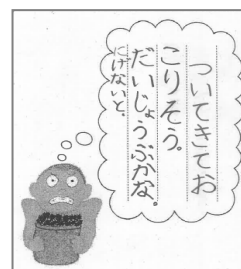 ついてきてお
こりそう。
だいじょうぶかな。
にげないと、